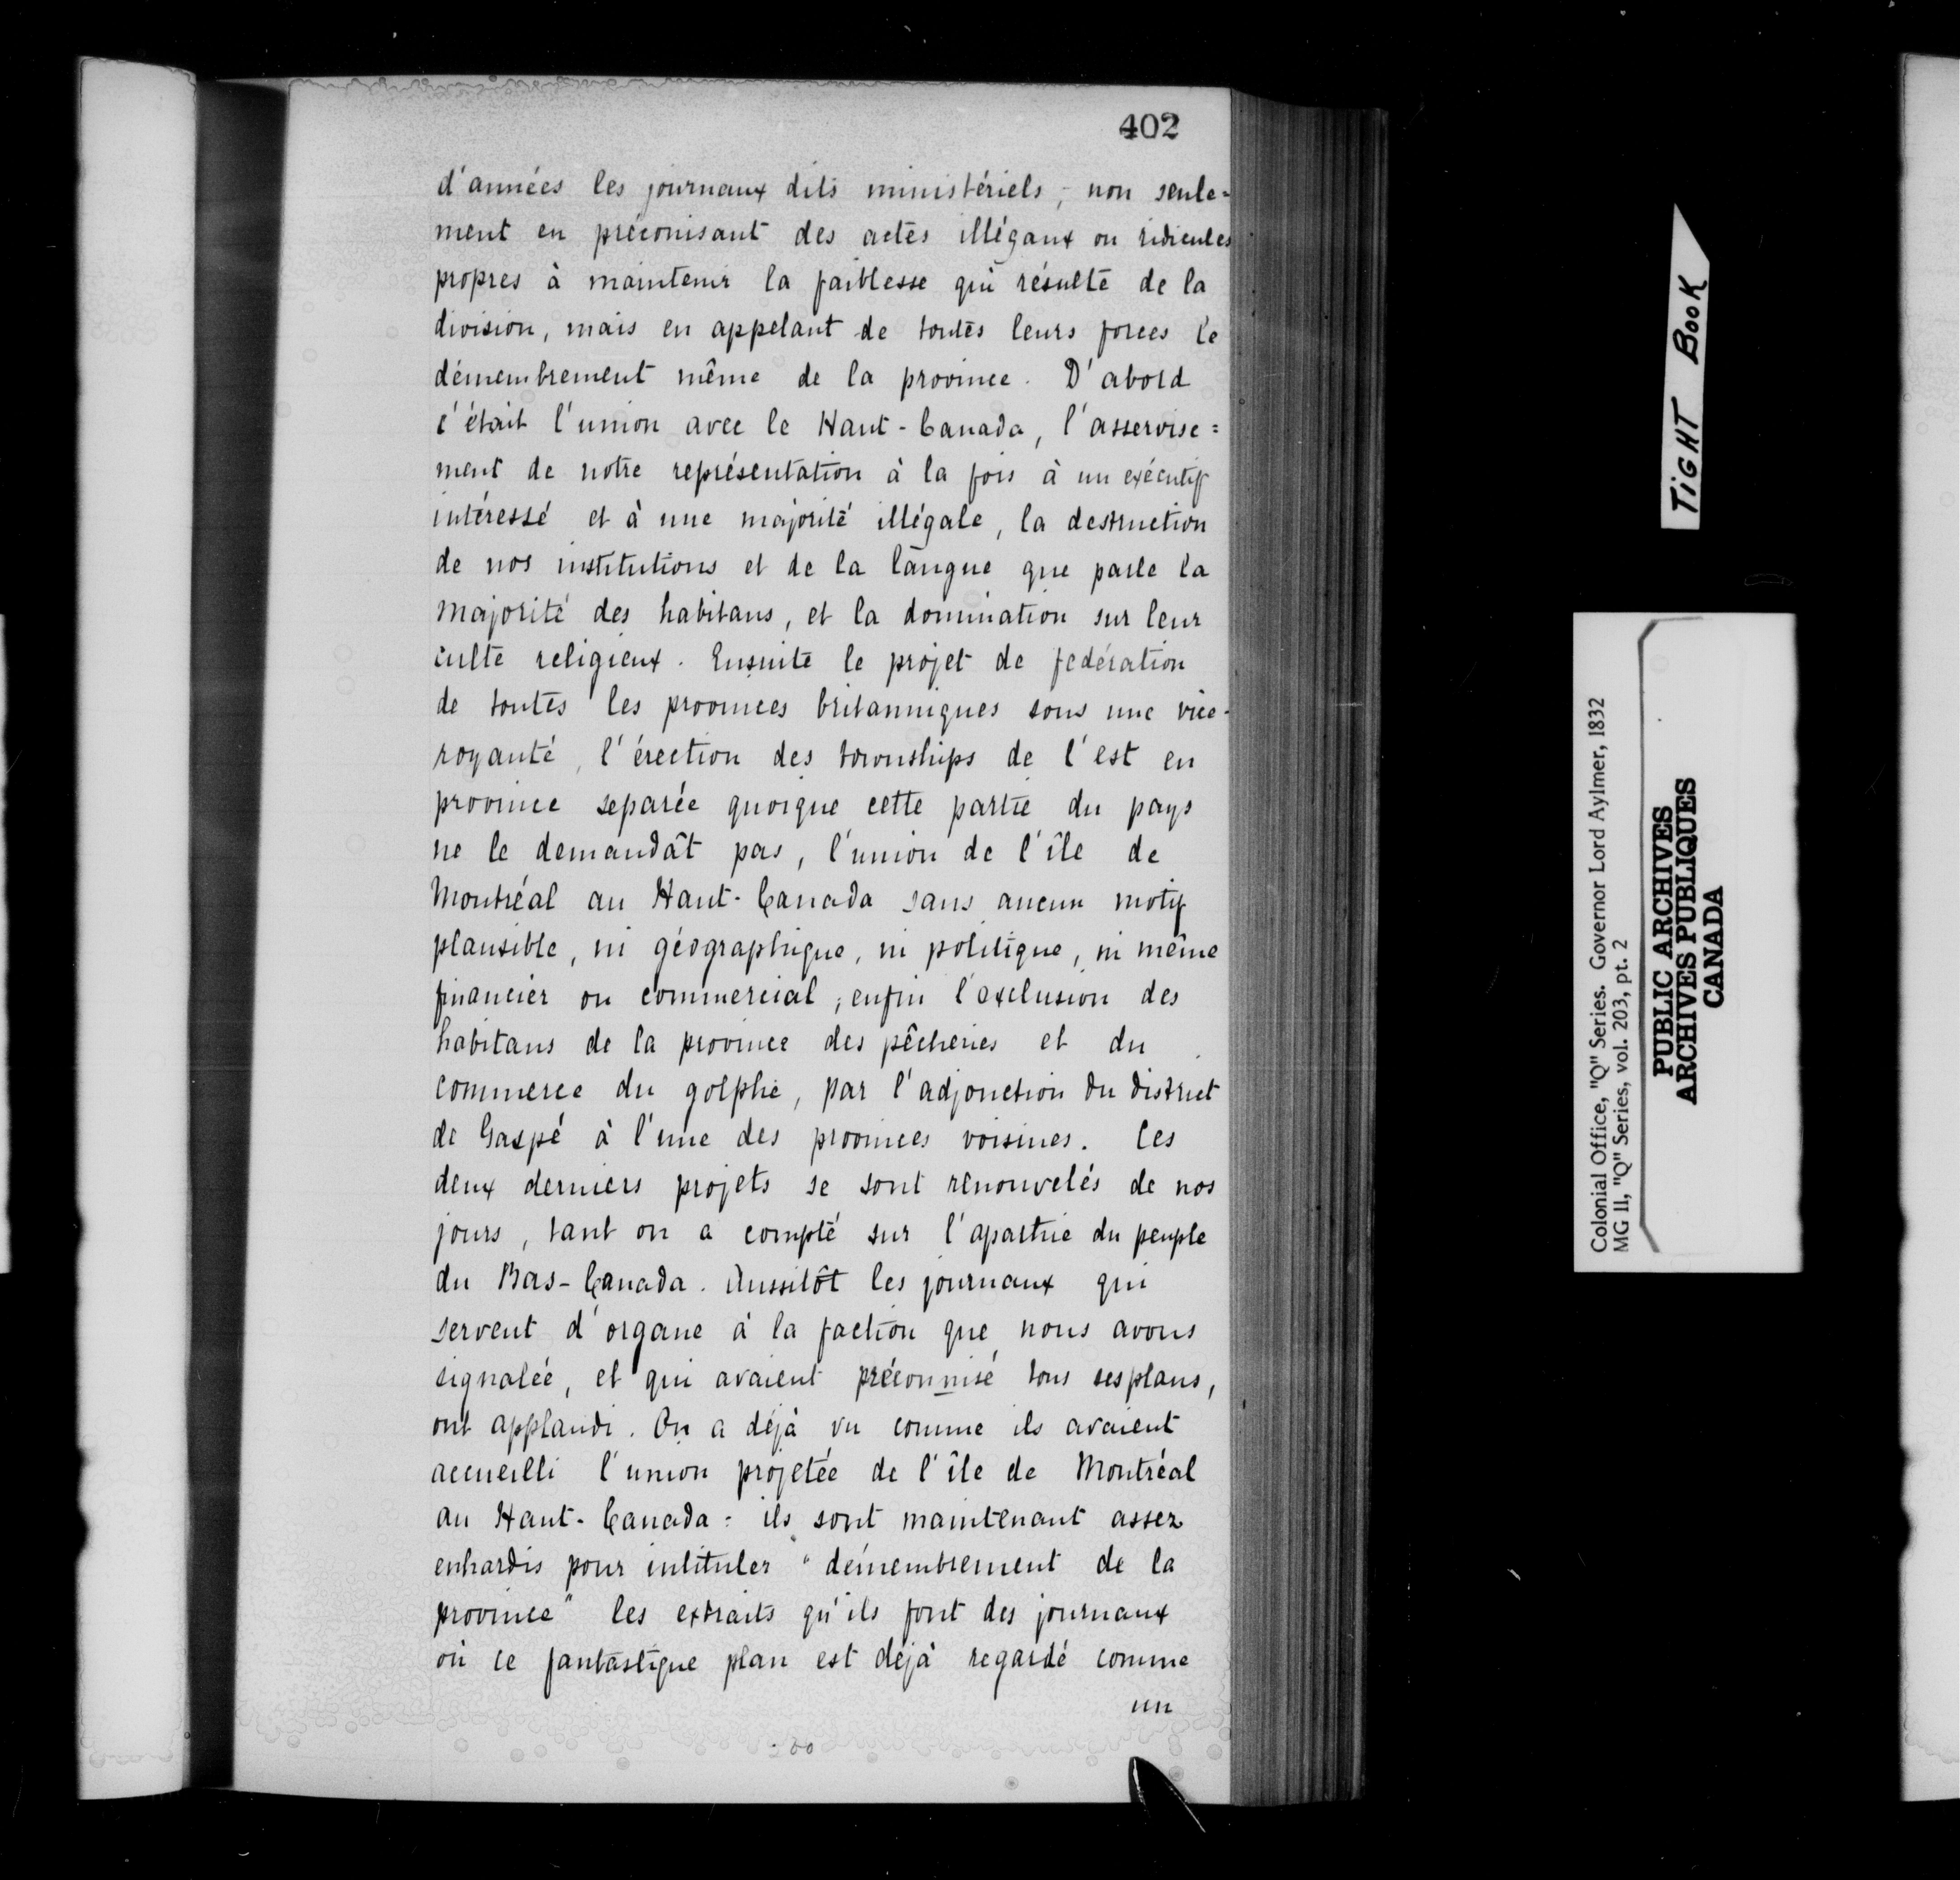 402
d'années les journaux dits ministériels, non seule=
ment en préconisant des actes illégaux ou ridicules
propres à maintenir la faiblesse qui résulte de la
division, mais en appelant de toutes leurs forces le
démembrement même de la province. D'abord
c'était l'union avec le Haut-Canada, l'asservise=
ment de notre représentation à la fois à un exécutif
intéressé et à une majorité illégale, la destruction
de nos institutions et de la langue que parle la
majorité des habitans, et la domination sur leur
culte religieux. Ensuite le projet de fedération
de toutes les provinces britanniques sous une vice-
royauté, l'érection des townships de l'est en
province separée quoique cette partie du pays
ne le demandât pas, l'union de l'île de
Montréal au Haut-Canada sans aucun motif
plausible, ni géographique, ni politique, ni même
financier ou commercial; enfin l'exclusion des
habitans de la province des pêcheries et du
commerce du golphe, par l'adjonction du district
de Gaspé à l'une des provinces voisines. Ces
deux derniers projets se sont renouvelés de nos
jours, tant on a compté sur l'apathie du peuple
du Bas-Canada. Aussitôt les journaux qui
servent d'organe à la faction que nous avons
signalée, et qui avaient préconnisé tous ses plans,
ont applaudi. On a déjà vu comme ils avaient
accueilli l'union projetée de l'île de Montréal
au Haut-Canada: ils sont maintenant assez
enhardis pour intituler "démembrement de la
province" les extraits qu'ils font des journaux
où ce fantastique plan est déjà regardé comme
un
TIGHT BOOK
Colonial Office, "Q" Series. Governor Lord Aylmer, 1832
MG 11, "Q" Series, vol. 203, pt. 2
PUBLIC ARCHIVES
ARCHIVES PUBLIQUES
CANADA